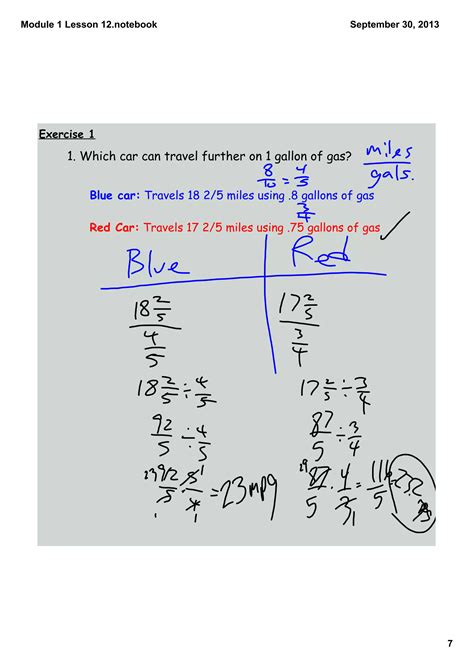 Module 1 Lesson 12.notebook
September 30, 2013
Exercise 1
1. Which car can travel further on 1 gallon of gas? miles/gals.
8/10 = 4/5
Blue car: Travels 18 2/5 miles using .8 gallons of gas
3/4
Red Car: Travels 17 2/5 miles using .75 gallons of gas ✓
Blue Red
18 2/5 17 2/5
4/5 3/4
18 2/5 ÷ 4/5 17 2/5 ÷ 3/4
92/5 ÷ 4/5 87/5 ÷ 3/4
23 92/5 · 5/4 = 23 mpg 29 87/5 · 4/3 = 116/5 = 23.2
1 1 1 1
7